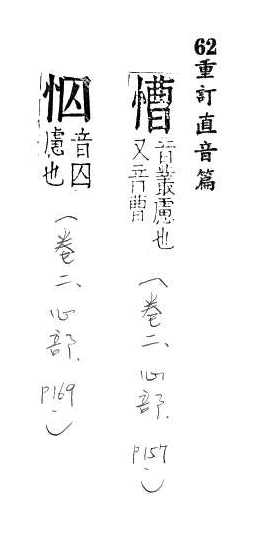 62重訂直音篇
慒音叢慮也又音曹(卷二、心部. p157)
怬音囚慮也(卷二、心部. p169)